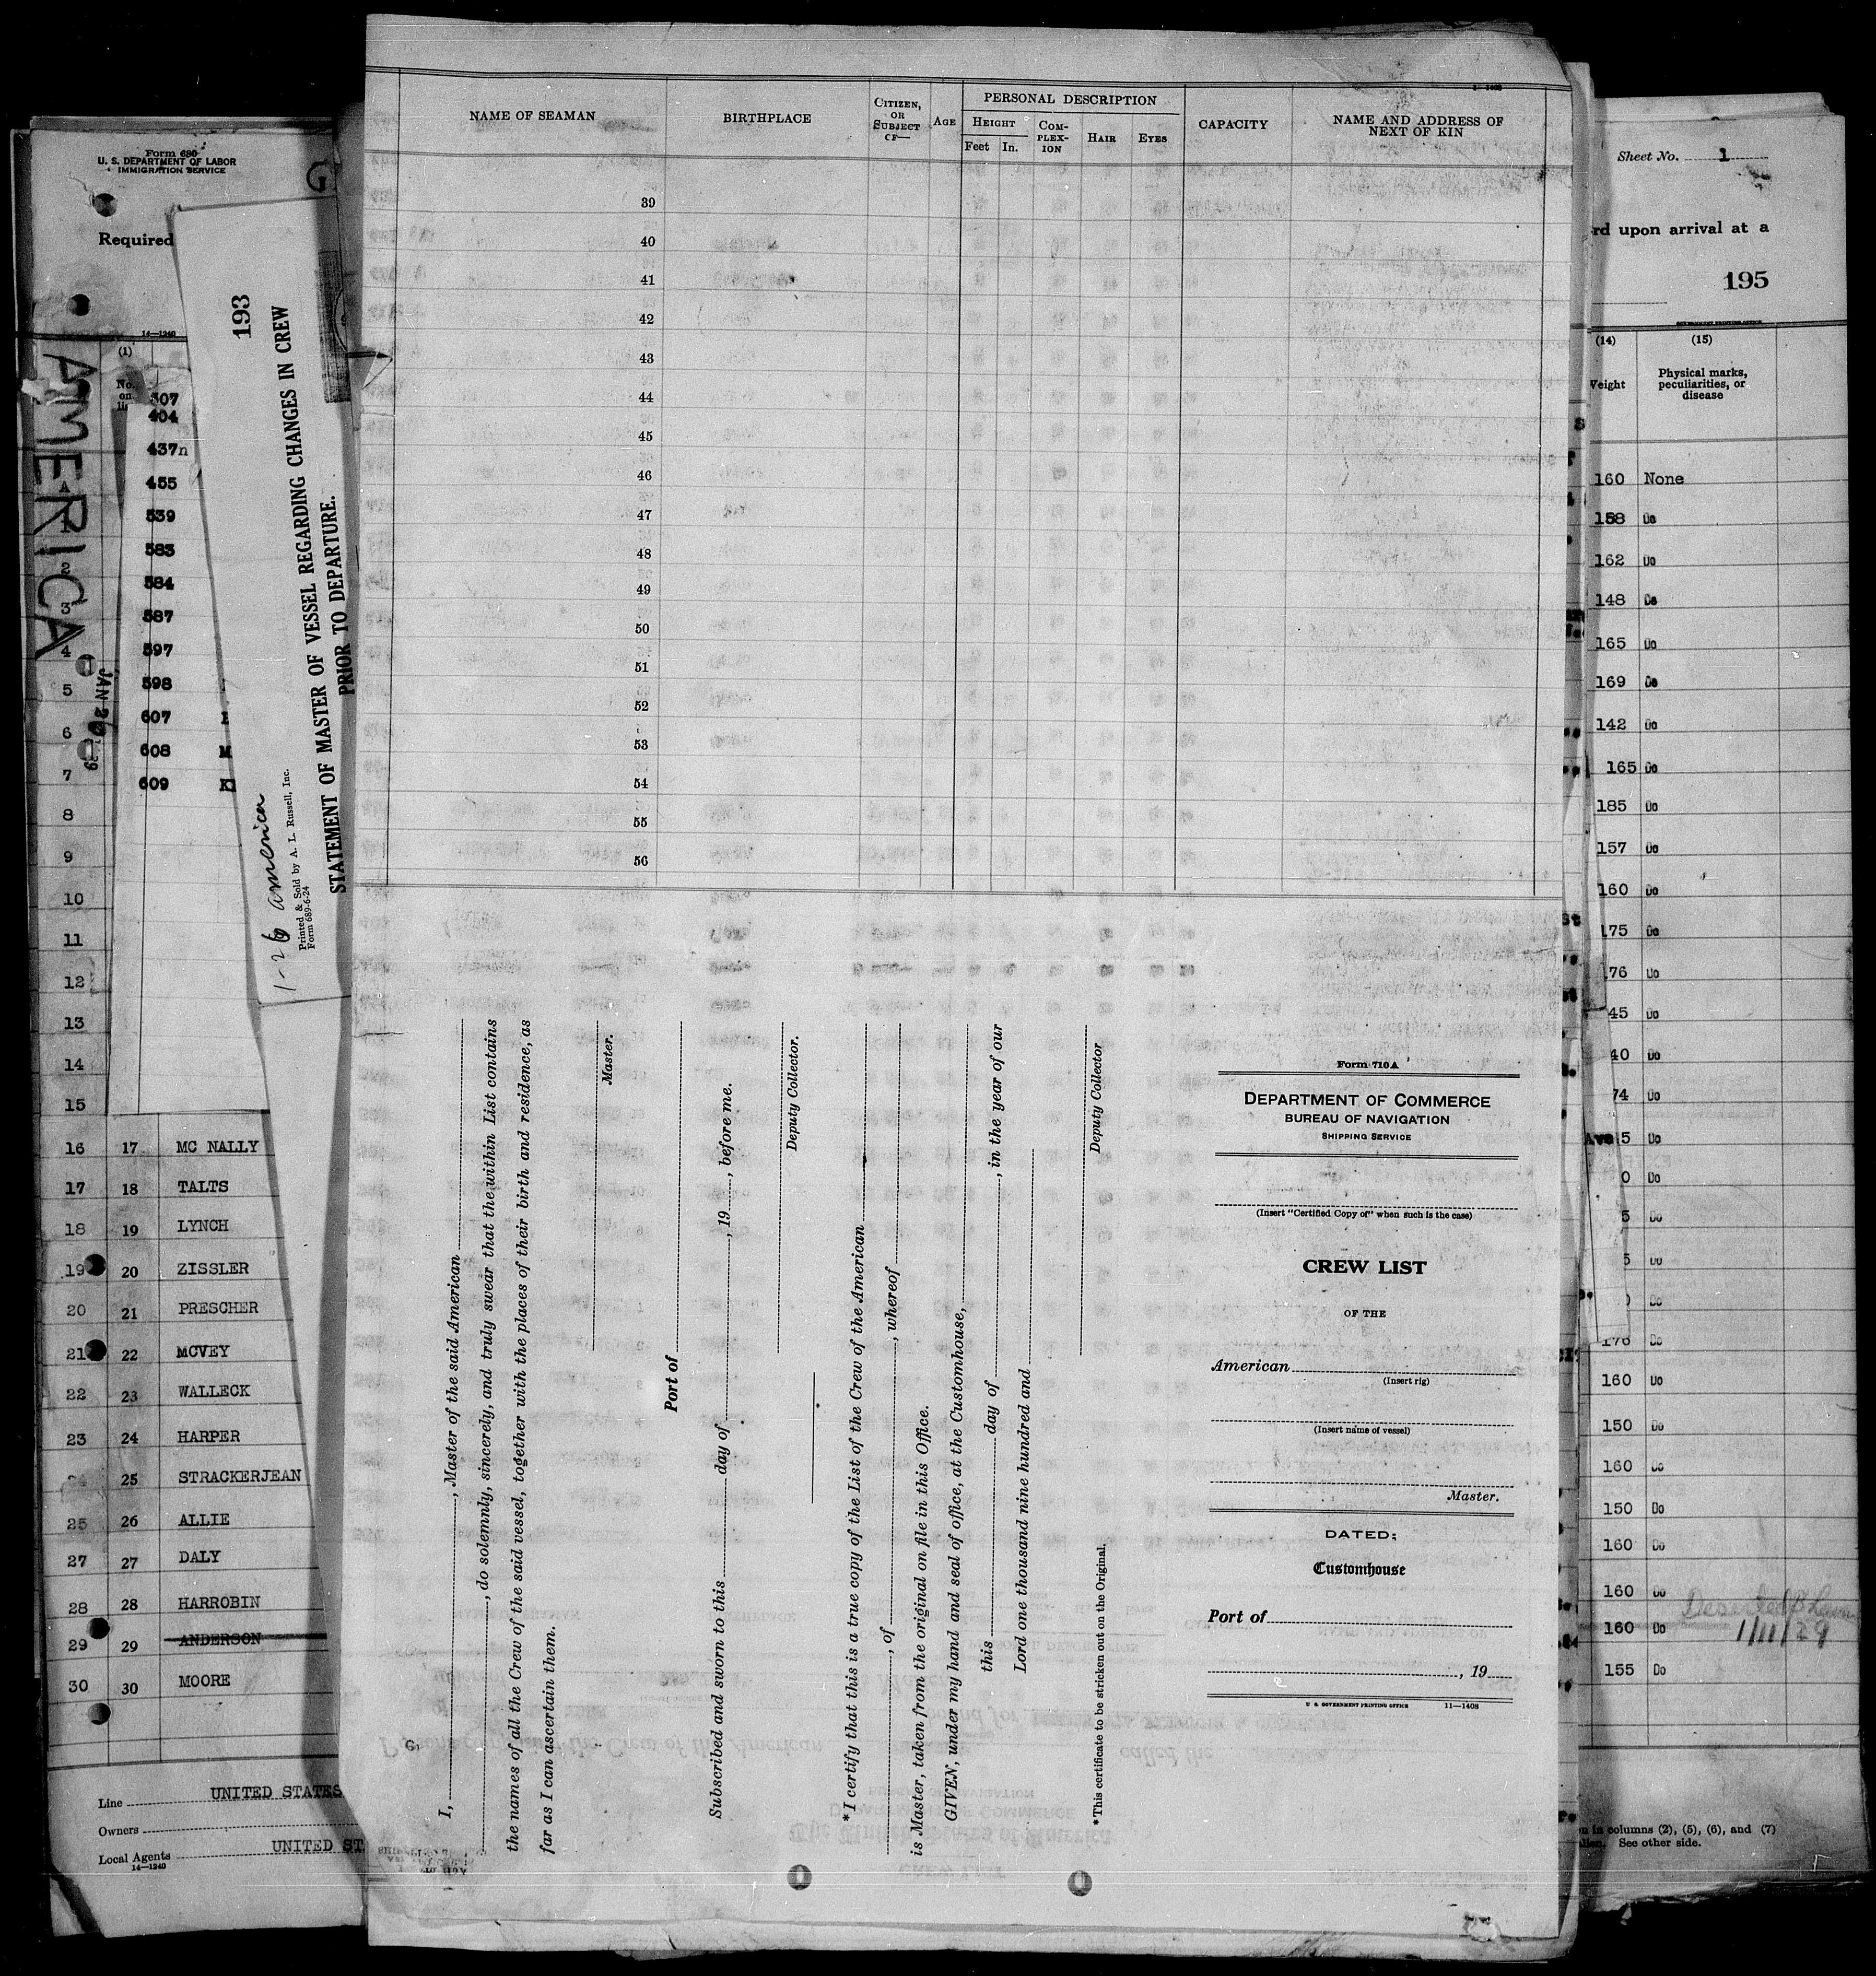 Form 680
U. S. DEPARTMENT OF LABOR
IMMIGRATION SERVICE
G
Required
14—1240
AMERICA
JAN 26
(1)
No.
on
307
404
437n
455
539
583
584
587
597
598
607
608 M
609 KI
A
1
2
3
4
5
6
7
8
9
10
11
12
13
14
15
16 17 MC NALLY
17 18 TALTS
18 19 LYNCH
19 20 ZISSLER
20 21 PRESCHER
21 22 MCVEY
22 23 WALLECK
23 24 HARPER
25 STRACKERJEAN
25 26 ALLIE
27 27 DALY
28 28 HARROBIN
29 29 ANDERSON
30 30 MOORE
Line UNITED STATES
Owners
Local Agents UNITED ST
14—1240
193
STATEMENT OF MASTER OF VESSEL REGARDING CHANGES IN CREW
PRIOR TO DEPARTURE.
1-26 america
Printed & Sold by A. L. Russell, Inc.
Form 689-6-24
NAME OF SEAMAN
BIRTHPLACE
CITIZEN,
OR
SUBJECT
OF—
AGE
PERSONAL DESCRIPTION
HEIGHT
Feet In.
COM-
PLEX-
ION
HAIR
EYES
CAPACITY
NAME AND ADDRESS OF
NEXT OF KIN
39
40
41
42
43
44
45
46
47
48
49
50
51
52
53
54
55
56
I, , Master of the said American
, do solemnly, sincerely, and truly swear that the within List contains
the names of all the Crew of the said vessel, together with the places of their birth and residence, as
far as I can ascertain them.
Master.
Port of
Subscribed and sworn to this day of , 19 , before me.
Deputy Collector.
*I certify that this is a true copy of the List of the Crew of the American
, of , whereof
is Master, taken from the original on file in this Office.
GIVEN, under my hand and seal of office, at the Customhouse,
this day of , in the year of our
Lord one thousand nine hundred and
Deputy Collector
*This certificate to be stricken out on the Original.
Form 710A
DEPARTMENT OF COMMERCE
BUREAU OF NAVIGATION
SHIPPING SERVICE
(Insert "Certified Copy of" when such is the case)
CREW LIST
OF THE
American
(Insert rig)
(Insert name of vessel)
Master.
DATED;
Customhouse
Port of
, 19
U. S. GOVERNMENT PRINTING OFFICE 11—1408
Sheet No. 1
rd upon arrival at a
195
GOVERNMENT PRINTING OFFICE
(14) (15)
Weight
Physical marks,
peculiarities, or
disease
160 None
158 Do
162 Do
148 Do
165 Do
169 Do
142 Do
165 Do
185 Do
157 Do
160 Do
175 Do
76 Do
45 Do
40 Do
74 Do
Ave 5 Do
0 Do
5 Do
5 Do
Do
170 Do
160 Do
150 Do
160 Do
150 Do
160 Do
160 Do
160 Do
1/11/29
155 Do
in columns (2), (5), (6), and (7)
See other side.